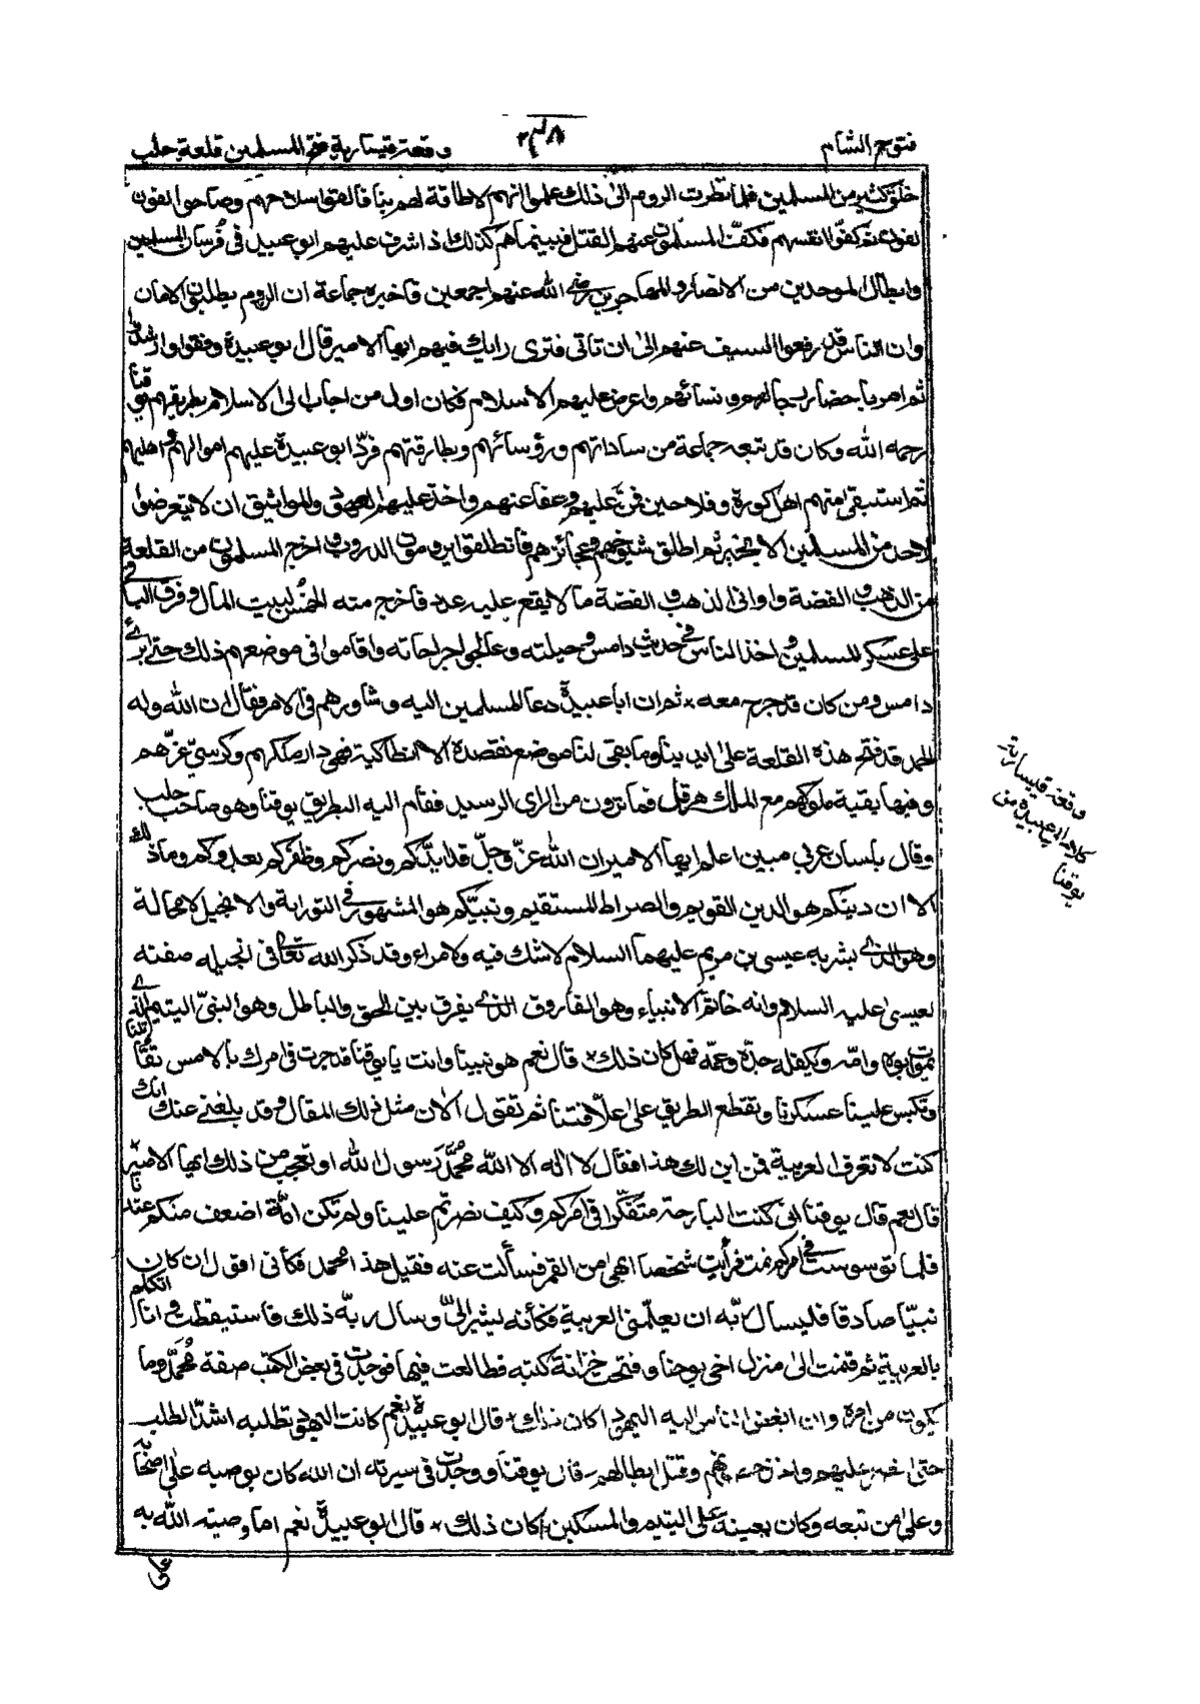 فتوح الشام
٢٣٨
وقعة قيسارية فتح المسلمين قلعة حلب
خلق كثير من المسلمين فلما نظرت الروم الى ذلك علموا انهم لا طاقة لهم بنا فالقوا سلاحهم وصاحوا لفون
لفون كفوا انفسهم فكفّ المسلمون عنهم القتل فبينما هم كذلك اذ اشرف عليهم ابو عبيدة في فرسان المسلمين
وابطال الموحدين من الانصار والمهاجرين رضي الله عنهم اجمعين فاخبره جماعة ان الروم يطلبون الامان
وان الناس قد رفعوا السيف عنهم الى ان تاتي فترى رايك فيهم ايها الامير قال ابو عبيدة وفقوا وارشدوا
ثم امر باحضار رجالهم ونسائهم واعرض عليهم الاسلام فكان اول من اجاب الى الاسلام بطريقهم يوقنا
رحمه الله وكان قد تبعه جماعة من ساداتهم ورؤسائهم وبطارقتهم فردّ ابو عبيدة عليهم اموالهم واهليهم
ثم استبقى منهم اهل كورة وفلاحين فمنّ عليهم وعفا عنهم واخذ عليهم العهود والمواثيق ان لا يتعرضوا
لاحد من المسلمين الا بخير ثم اطلق شيوخهم وعجائزهم فانطلقوا يرومون الدروب واخرج المسلمون من القلعة
من الذهب والفضة واواني الذهب والفضة ما لا يقع عليه عدد فاخرج منه الخمس لبيت المال وفرق الباقي
على عسكر المسلمين واخذ الناس في حديث دامس وحيلته وعالجوا جراحاته واقاموا في موضعهم ذلك حتى برئ
دامس ومن كان قد جرح معه * ثم ان ابا عبيدة دعا المسلمين اليه وشاورهم في الامر فقال ان الله وله
الحمد قد فتح هذه القلعة على ايدينا وما بقي لنا موضع نقصده الا انطاكية فهي دار ملكهم وكرسيّ عزّهم
وفيها بقية ملوكهم مع الملك هرقل فما ترون من الراي الرسيد فقام اليه البطريق يوقنا وهو صاحب حلب
وقال بلسان عربي مبين اعلم ايها الامير ان الله عزّ وجلّ قد ايّدكم ونصركم وظفركم بعدوكم وما ذلك
الا ان دينكم هو الدين القويم والصراط المستقيم ونبيّكم هو المشهور في التوراية والانجيل لا محالة
وهو الذي بشر به عيسى بن مريم عليهما السلام لا شك فيه ولا مراء وقد ذكر الله تعالى في انجيله صفته
لعيسى عليه السلام وانه خاتم الانبياء وهو الفاروق الذي يفرق بين الحق والباطل وهو النبيّ اليتيم الذي
يموت ابوه وامّه ويكفله جدّه وعمّه فهل كان ذلك * قال نعم هو نبينا وانت يا يوقنا قد جرت في امرك بالامس تقاتلنا
وتكبس علينا عسكرنا وتقطع الطريق على علّافتنا ثم تقول الان مثل ذلك المقال وقد بلغني عنك انك
كنت لا تعرف العربية فمن اين لك هذا فقال لا اله الا الله محمّد رسول الله او تعجب من ذلك ايها الامير *
قال نعم قال يوقنا اني كنت البارحة متفكّرا في امركم وكيف نصرتم علينا ولم تكن امّة اضعف منكم عندنا
فلما توسوست في امركم نمت فرأيت شخصا ابهى من القمر فسألت عنه فقيل هذا محمد فكأني اقول ان كان
نبيّا صادقا فليسال ربّه ان يعلّمني العربية فكأنه يشير اليّ وسال ربّه ذلك فاستيقظت وانا اتكلم
بالعربية ثم قمت الى منزل اخي يوحنا وفتحت خزانة كتبه فطالعت فيها فوجدت في بعض الكتب صفة محمّد وما
يكون من امره وان ابغض الناس اليه اليهود اكان ذلك * قال ابو عبيدة نعم كانت اليهود تطلبه اشدّ الطلب
حتى عليهم وقتل ابطالهم قال يوقنا ووجدت في سيرته ان الله كان يوصيه على اصحابه
وعلى من تبعه وكان يعينه على اليتيم والمسكين اكان ذلك * قال ابو عبيدة نعم اما وصية الله به
على
واقعة قيسارية
كلام ابو عبيدة من
يوقنا